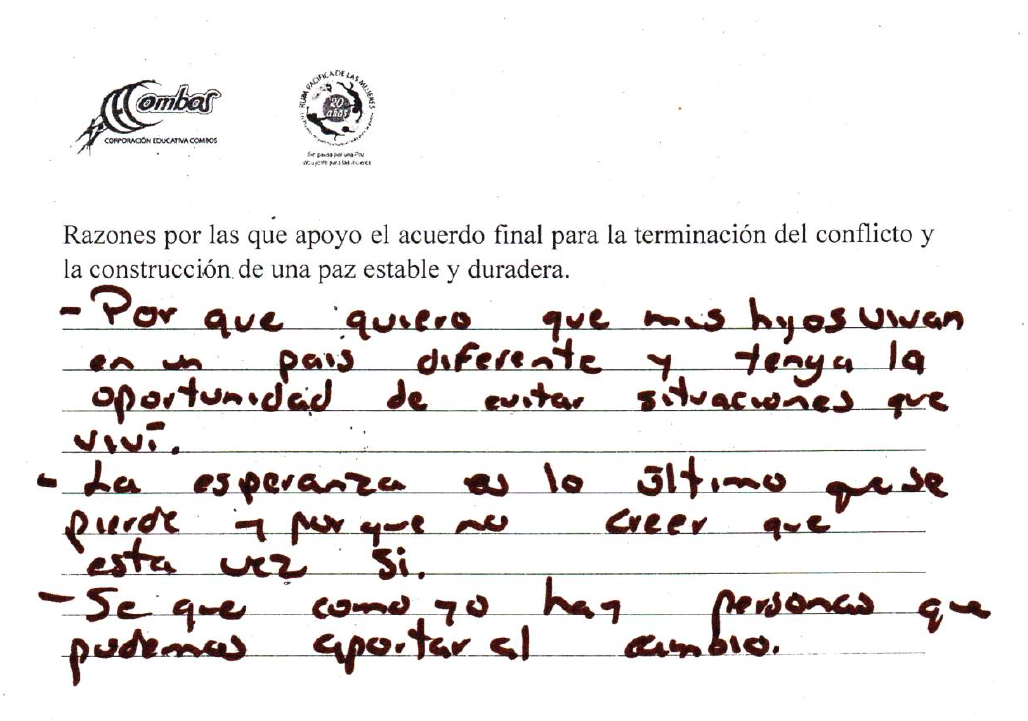 Combos
CORPORACIÓN EDUCATIVA COMBOS
RUTA PACÍFICA DE LAS MUJERES
20
años
Razones por las que apoyo el acuerdo final para la terminación del conflicto y
la construcción de una paz estable y duradera.
- Por que quiero que mis hijos vivan
en un pais diferente y tenga la
oportunidad de evitar situaciones que
viví.
- La esperanza es lo último que se
pierde y por que no creer que
esta vez si.
- Se que como yo hay personas que
podemos aportar al cambio.